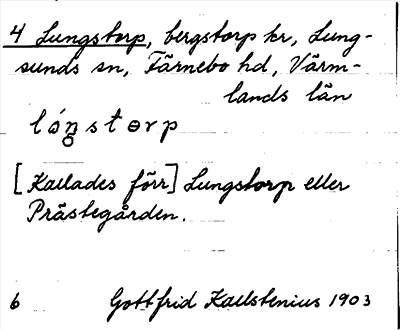 4 Lungstorp, bergstorp kr, Lung-
sunds sn, Färnebo hd, Värm-
lands län
lóŋstɵrp
[Kallades förr] Lungstorp eller
Prästegården.
6 Gottfrid Kallstenius 1903